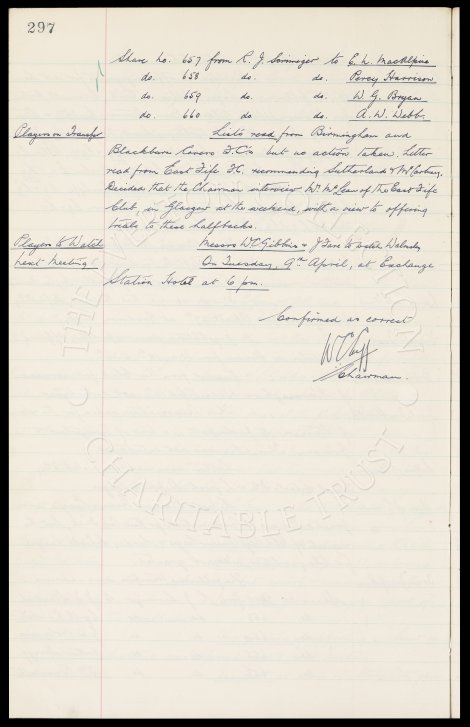 297
Share No. 657 from R. J. to E. L. MacAlpine
do. 658 do. do. Percy Harrison
do. 659 do. do. W. G. Bryan
do. 660 do. do. A. W. Webb.
Players on Transfer Lists read from Birmingham and
Blackburn Rovers F.C's but no action taken. Letter
read from East Fife F.C. recommending Sutherland &
Decided that the Chairman interview Mr McLean of the East Fife
Club, in Glasgow at the weekend, with a view to offering
trials to these halfbacks.
Players to Watch Messrs W C Gibbins & J to watch
Next Meeting On Tuesday, 9th April, at Exchange
Station Hotel at 6 pm.
Confirmed as correct
W C Cuff
Chairman.
CHARITABLE TRUST